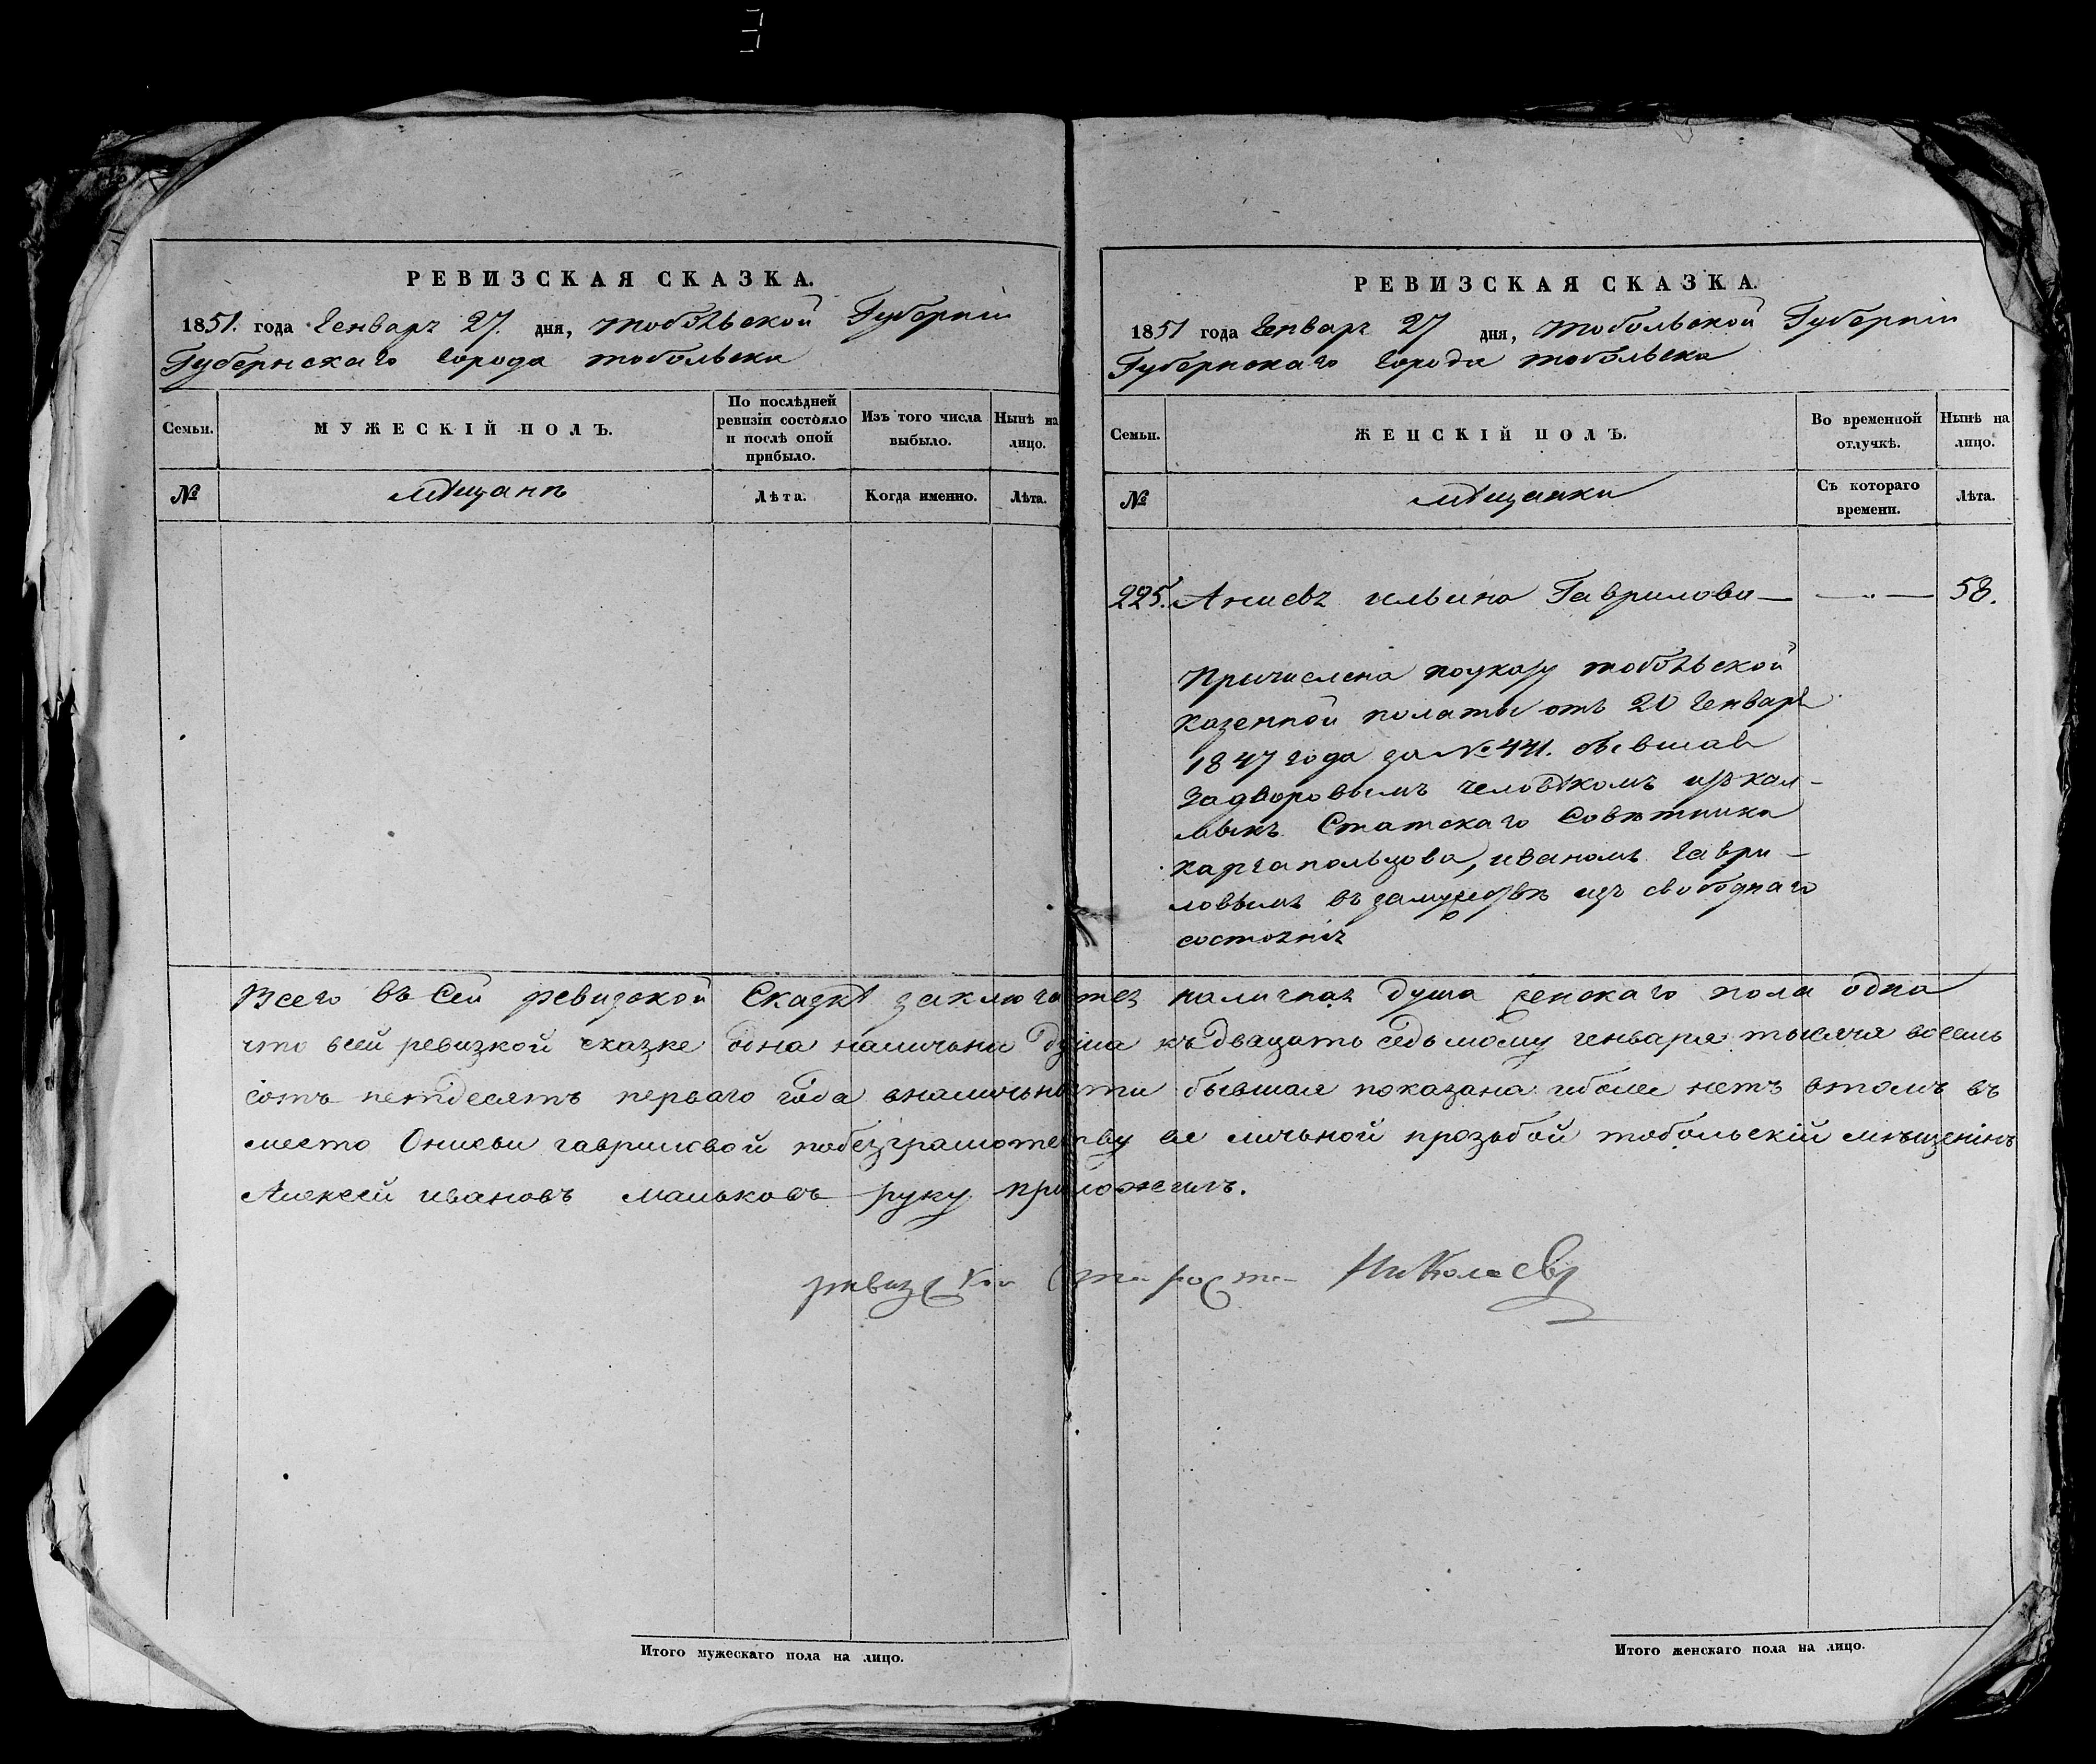 РЕВИЗСКАЯ СКАЗКА.
1851. года Генваря 27. дня, Тобольской Губерніи
Губернскаго города Тобольска
Семьи.
МУЖЕСКІЙ ПОЛЪ.
По послѣдней ревизіи состояло и послѣ оной прибыло.
Изъ того числа выбыло.
Нынѣ на лицо.
№
мѣщанъ
Лѣта.
Когда именно.
Лѣта.
РЕВИЗСКАЯ СКАЗКА.
1851 года Генваря 27 дня, Тобольской Губерніи
Губернскаго города Тобольска
Семьи.
ЖЕНСКІЙ ПОЛЪ.
Во временной отлучкѣ.
Нынѣ на лицо.
№
мѣщанки
Съ котораго времени.
Лѣта.
225. Анисья ильина Гаврилова — —〃— 58.
Причислена поуказу тобольской
казенной полаты отъ 20 Генваря
1847 года за № 441. бывшая
задворовымъ человѣкомъ изъ кал-
мыкъ Статскаго Совѣтника
карчапольцова, иваномъ гаври-
ловымъ въ замужествѣ изъ свободнаго
состоянія
Всего въ Сей ревизской Сказкѣ заключается наличная душа женскаго пола одна
что всей ревизкой сказке одна наличьна душа къ двацать седьмому генваря тысяча восемь
сотъ петдесятъ перваго года вналичьности бывшая показана иболее нетъ втомъ въ
место Онисьи гавриловой побезграмотству ее личьной прозьбой тобольскій мѣщенінъ
Алексей ивановъ мальковъ руку приложилъ.
ревизской Староста Николаевъ
Итого мужескаго пола на лицо.
Итого женскаго пола на лицо.